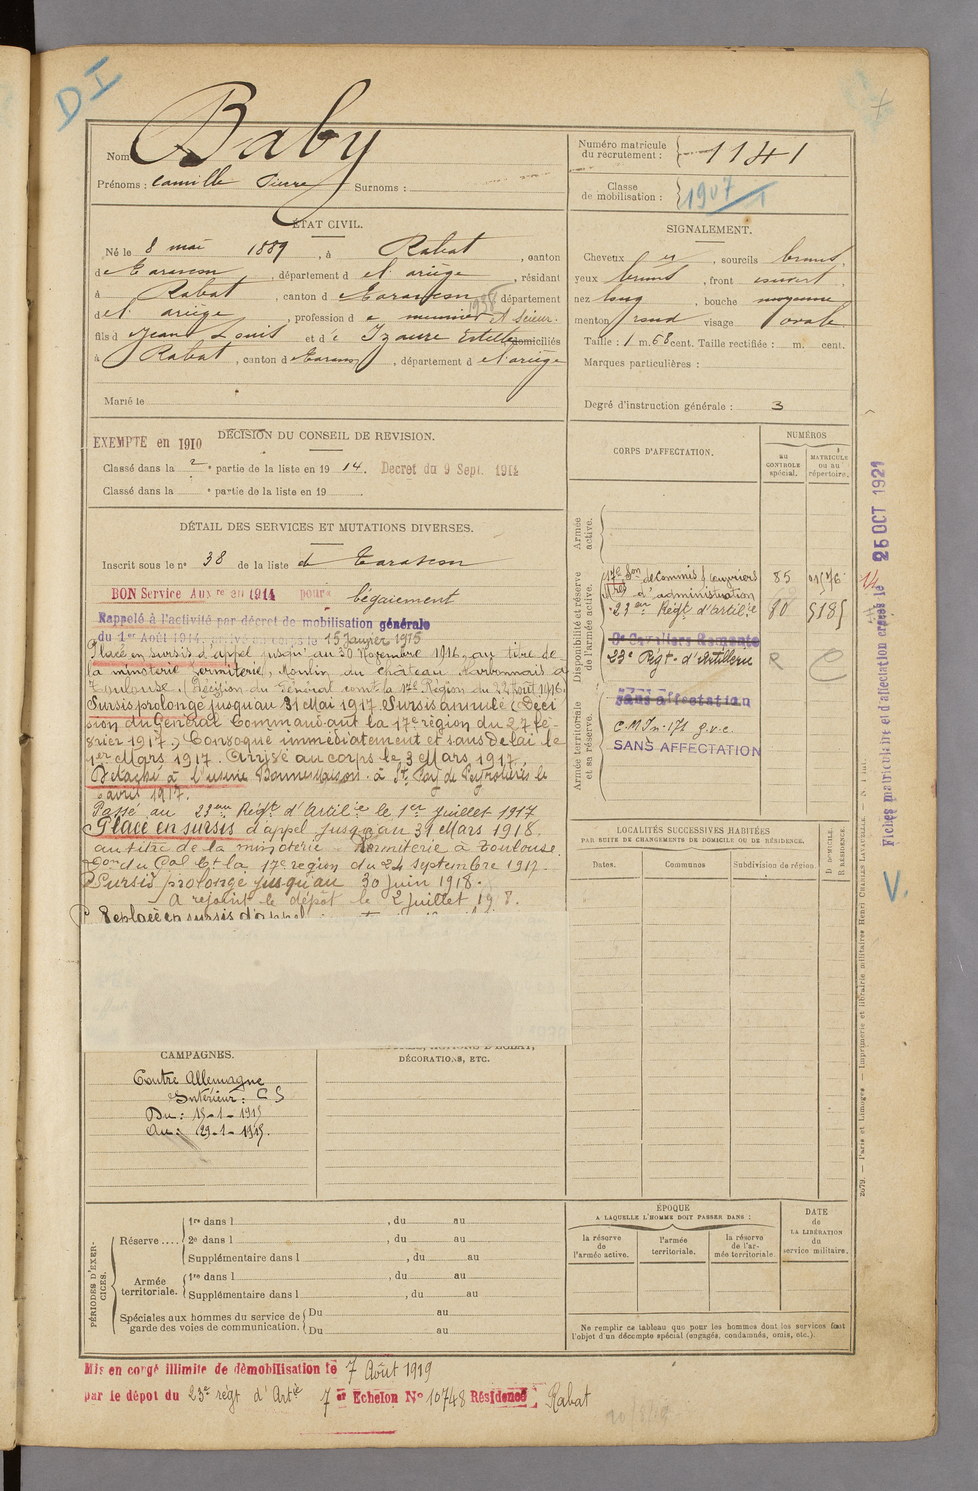 DI
Nom Baby
Prénoms : Camille Pierre Surnoms :
Numéro matricule du recrutement : 1141
Classe de mobilisation : 1907
ÉTAT CIVIL.
Né le 8 mai 1889, à Rabat, canton
de Tarascon, département d el'ariège, résidant
à Rabat, canton d e Tarascon, département
d el'ariège, profession d e meunier
fils d Jean Louis et d e Izaure Estelle domiciliés
à Rabat, canton d e Tarascon, département d el'ariège
Marié le
SIGNALEMENT.
Cheveux er, sourcils bruns,
yeux bruns, front ouvert,
nez long, bouche moyenne
menton rond visage ovale
Taille : 1 m. 68 cent. Taille rectifiée : m. cent.
Marques particulières :
Degré d'instruction générale : 3
DÉCISION DU CONSEIL DE REVISION.
EXEMPTÉ en 1910
Classé dans la 2e partie de la liste en 1914. Decret du 9 Sept. 1914
Classé dans la e partie de la liste en 19
DÉTAIL DES SERVICES ET MUTATIONS DIVERSES.
Inscrit sous le n° 38 de la liste d Tarascon
BON Service Auxre en 1914 pour bégaiement
Rappelé à l'activité par décret de mobilisation générale
du 1er Août 1914. arrivé au corps le 15 Janvier 1915
Placé en sursis d'appel jusqu'au 30 Novembre 1916 au titre de
la minoterie, Moulin du Château Narbonnais à
Toulouse. Décision du Général comt la 17e Région du 22 Août 1916.
Sursis prolongé jusqu'au 31 Mai 1917. Sursis annulé (Déci
sion du Général Commandant la 17e région du 27 fé-
vrier 1917.) Convoqué immédiatement et sans délai le
1er Mars 1917. Arrivé au corps le 3 Mars 1917.
Détaché à l'usine Bonnemaison à St le
avril 1917.
Passé au 23ème Régt d'Artilie le 1er juillet 1917
Placé en sursis d'appel jusqu'au 31 Mars 1918.
au titre de la minoterie à Toulouse.
Don du Gal Ct la 17e région du 24 septembre 1917.
Sursis prolongé jusqu'au 30 juin 1918.
A rejoint le dépôt le 2 juillet 1918.
Replacé en sursis d'appel
CORPS D'AFFECTATION.
NUMÉROS
AU CONTROLE spécial.
MATRICULE ou au répertoire.
Armée active.
Disponibilité et réserve de l'armée active.
17e Son de Commis & ouvriers
d'administration 85
23ème Régt d'Artilie 80 5185
9e Cavaliers Remonte
23e Régt d'Artillerie
Armée territoriale et sa réserve.
Sans affectation
C.M. In. 171 g.v.c.
SANS AFFECTATION
LOCALITÉS SUCCESSIVES HABITÉES
PAR SUITE DE CHANGEMENTS DE DOMICILE OU DE RÉSIDENCE.
Dates. Communes Subdivision de région.
D. DOMICILE. R. RÉSIDENCE.
CAMPAGNES.
Contre Allemagne
Intérieur : C S
Du : 15-1-1915
Au : 29-1-1915.
DÉCORATIONS, ETC.
PÉRIODES D'EXERCICES.
Réserve....
1re dans l , du au
2e dans l , du au
Supplémentaire dans l , du au
Armée territoriale.
1re dans l , du au
Supplémentaire dans l , du au
Spéciales aux hommes du service de garde des voies de communication.
Du au
Du au
ÉPOQUE
A LAQUELLE L'HOMME DOIT PASSER DANS :
la réserve de l'armée active.
l'armée territoriale.
la réserve de l'armée territoriale
DATE de LA LIBÉRATION du service militaire.
Ne remplir ce tableau que pour les hommes dont les services font
l'objet d'un décompte spécial (engagés, condamnés, omis, etc.).
Mis en congé illimité de démobilisation le 7 Août 1919
par le dépot du 23e régt d'Artie 7e Echelon N° 10748 Résidence Rabat
Fiches matriculaire et d'affectation créées le 25 OCT 1921
V.
2079. — Paris et Limoges. — Imprimerie et librairie militaires Henri CHARLES-LAVAUZELLE.